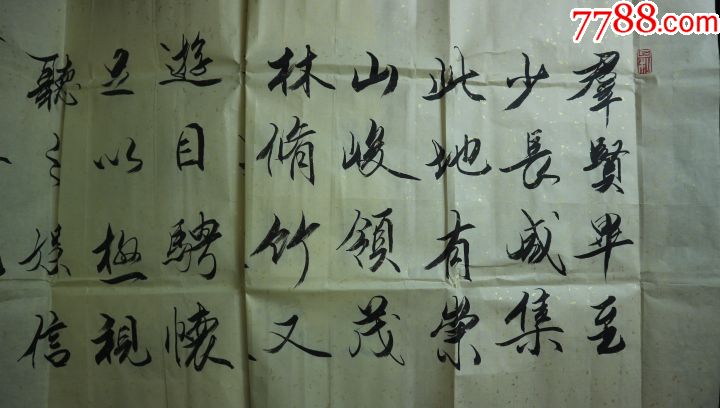 7788.com
羣賢畢至
少長咸集
此地有崇
山峻領茂
林脩竹又
遊目騁懷
足以極視
聽之娛信